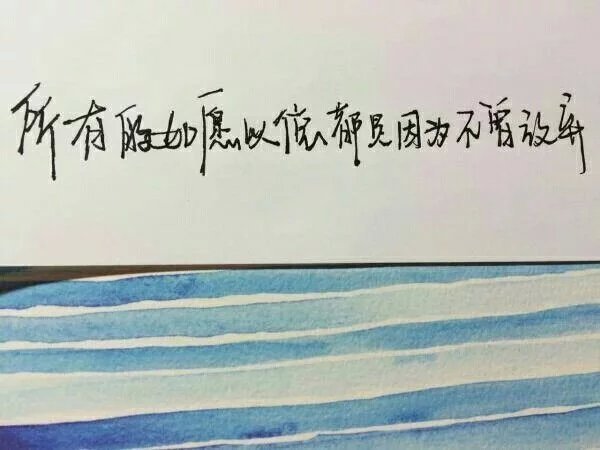 所有的如愿以偿都是因为不曾放弃